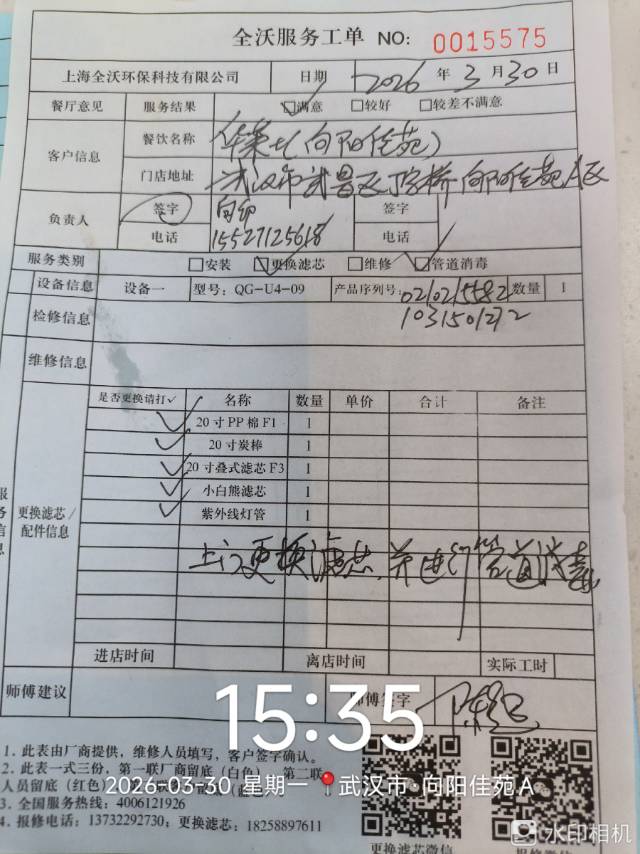 全沃服务工单 NO: 0015575
上海全沃环保科技有限公司 日期 2026 年 3 月 30 日
餐厅意见 服务结果 ☑满意 □较好 □较差不满意
客户信息 餐饮名称 华莱士(向阳佳苑)
门店地址 武汉市武昌区丁字桥向阳佳苑A区
负责人 签字 签字
电话 15527125618 电话
服务类别 □安装 ☑更换滤芯 □维修 ☑管道消毒
设备信息 设备一 型号: QG-U4-09 产品序列号: 0210215582 数量 1
1031501272
检修信息
维修信息
是否更换请打✓ 名称 数量 单价 合计 备注
✓ 20寸PP棉F1 1
✓ 20寸炭棒 1
✓ 20寸叠式滤芯F3 1
✓ 小白熊滤芯 1
✓ 紫外线灯管 1
服务信息
更换滤芯/配件信息
上门更换滤芯,并进行管道消毒
进店时间 离店时间 实际工时
师傅建议 师傅签字
15:35
1. 此表由厂商提供，维修人员填写，客户签字确认。
2. 此表一式三份，第一联厂商留底（白色） 第二联
人员留底（红色）
2026-03-30 星期一 武汉市·向阳佳苑A
3. 全国服务热线: 4006121926
4. 报修电话: 13732292730; 更换滤芯: 18258897611
更换滤芯微信 报修微信
水印相机